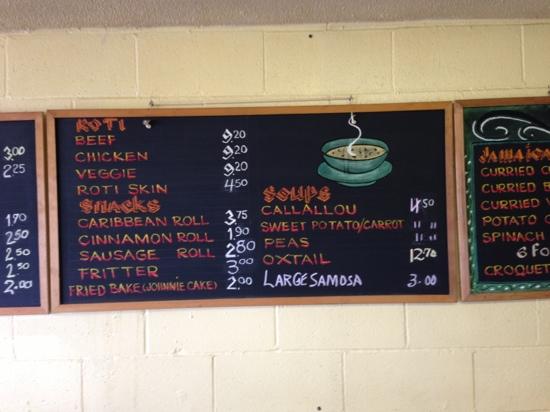 3.00
2.25
1.90
2.50
2.50
2.50
2.00
ROTI
BEEF 9.20
CHICKEN 9.20
VEGGIE 9.20
ROTI SKIN 4.50
SNACKS
CARIBBEAN ROLL 3.75
CINNAMON ROLL 1.90
SAUSAGE ROLL 2.80
FRITTER 3.00
FRIED BAKE (JOHNNIE CAKE) 2.00
SOUPS
CALLALLOU 4.50
SWEET POTATO/CARROT " "
PEAS " "
OXTAIL 12.70
LARGE SAMOSA 3.00
CURRIED
CURRIED
CURRIED
POTATO
SPINACH
6 FO
CROQUET